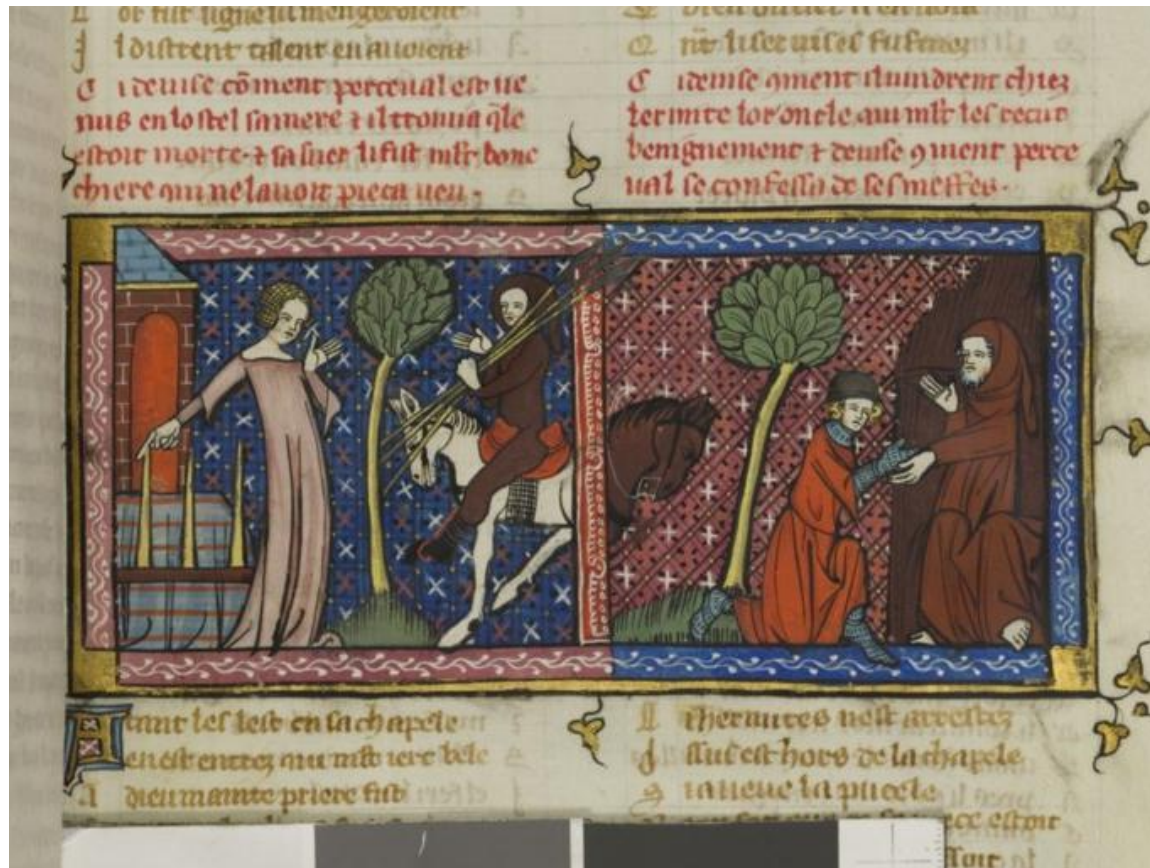 J l distrent talent en auoient
C i deuise cōment perceual est ue
nus en lostel sa mere ⁊ il trouua q̄le
estoit morte · ⁊ sa suer li fist mlt bone
chiere qui ne lauoit pieca ueu ·
A tant les lest en sa chapele
en est entrez qui mlt iere bele
A dieu mainte priere fist
Q nt li seruises fu finez
C i deuise ꝯment il uindrent chiez
lermite lor oncle qui mlt les recut
benignement ⁊ deuise ꝯment perce
ual se confessa de ses meffes ·
hermites nest arrestez
J ssus est hors de la chapele
ueue la pucele
estoit